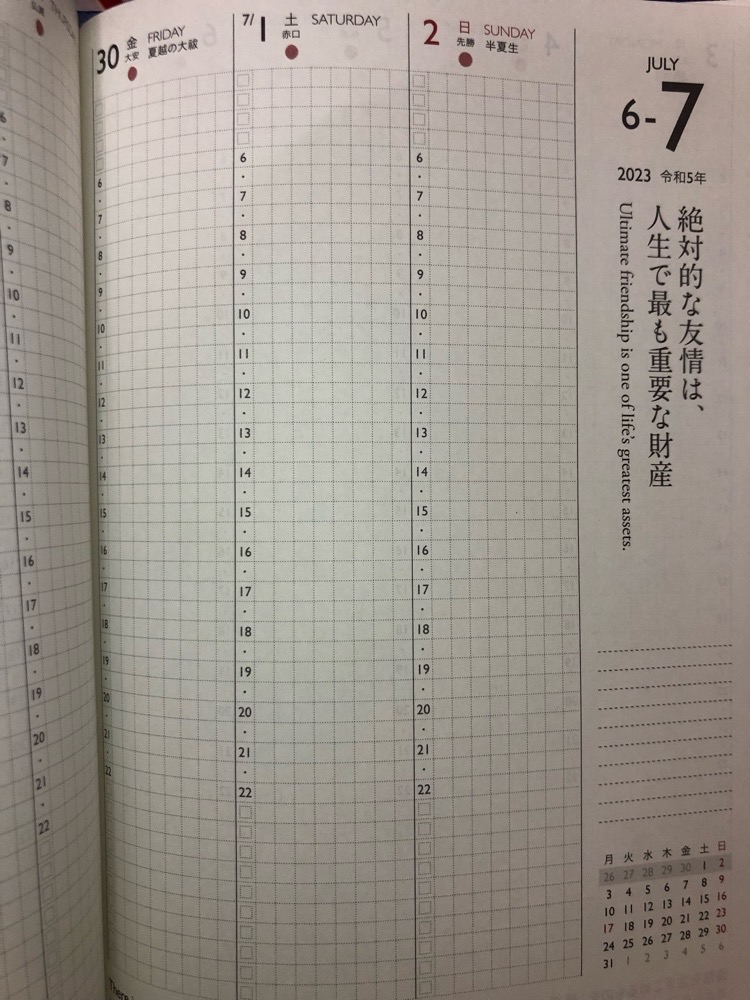 30 金 FRIDAY
大安 夏越の大祓
7/1 土 SATURDAY
赤口
2 日 SUNDAY
先勝 半夏生
JULY
6-7
2023 令和5年
絶対的な友情は、
人生で最も重要な財産
Ultimate friendship is one of life's greatest assets.
6
7
8
9
10
11
12
13
14
15
16
17
18
19
20
21
22
6
7
8
9
10
11
12
13
14
15
16
17
18
19
20
21
22
6
7
8
9
10
11
12
13
14
15
16
17
18
19
20
21
22
6
7
8
9
10
11
12
13
14
15
16
17
18
19
20
21
22
月 火 水 木 金 土 日
26 27 28 29 30 1 2
3 4 5 6 7 8 9
10 11 12 13 14 15 16
17 18 19 20 21 22 23
24 25 26 27 28 29 30
31 1 2 3 4 5 6